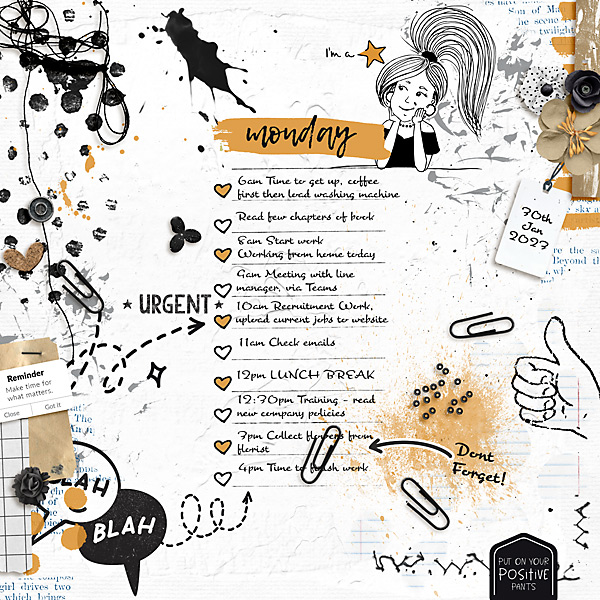 Son of Ma
the scene
twilight
I'm a
monday
6am Time to get up, coffee
first then load washing machine
Read few chapters of book
8am Start work
Working from home today
9am Meeting with line
manager, via Teams
★ URGENT ★
10am Recruitment Work,
upload current jobs to website
11am Check emails
12pm LUNCH BREAK
12:30pm Training - read
new company policies
3pm Collect flowers from
florist
4pm Time to finish work
30th
Jan
2023
Reminder
Make time for
what matters.
Close
Got it
Dont
Forget!
BLAH
BLAH
PUT ON YOUR
POSITIVE
PANTS
girl drives two
in which brings